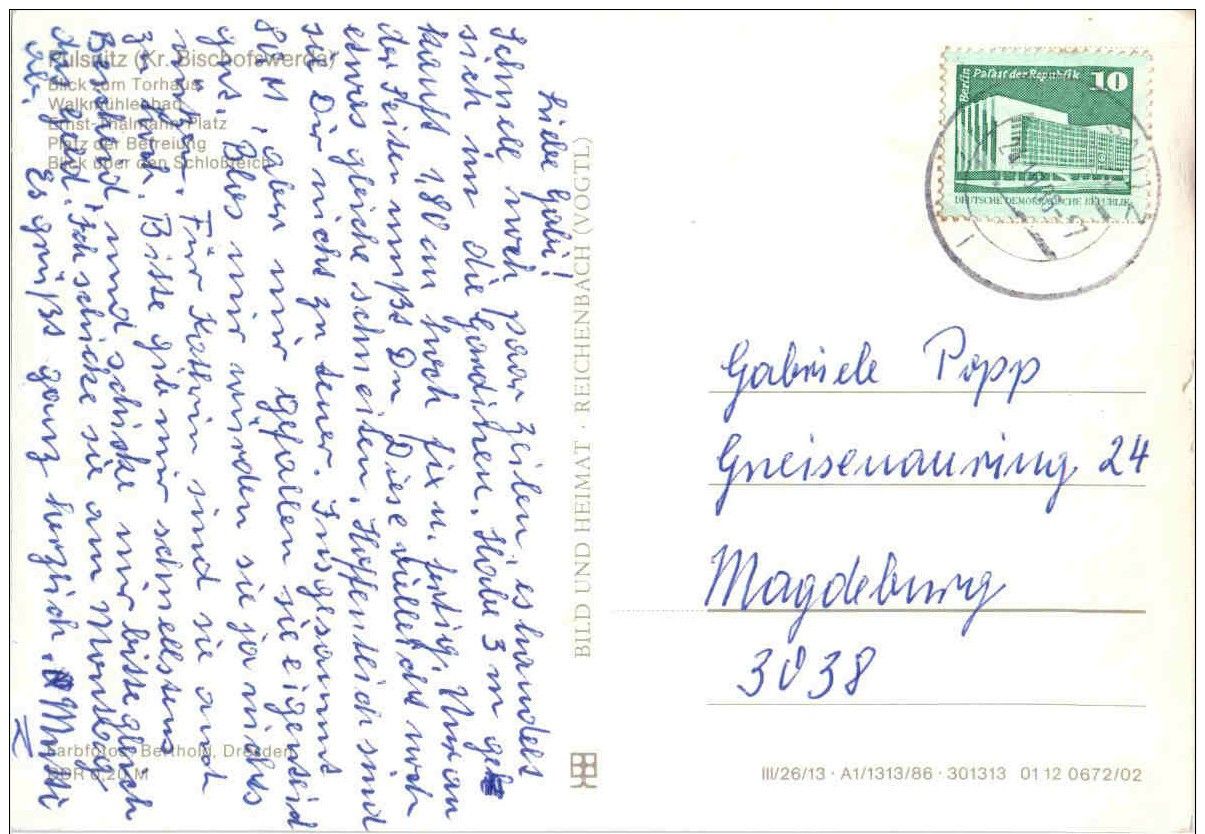 Pulsnitz (Kr. Bischofswerda)
Blick zum Torhaus
Walkmühlenbad
Ernst-Thälmann-Platz
Platz der Befreiung
Blick über den Schloßteich
Liebe Gabi!
Schnell noch paar Zeilen, es handelt
sich um die Gardinen. Habe 3 m ge-
kauft 1,80 m hoch fix u. fertig. Nur an
den Seiten mußt Du Diese vielleicht noch
etwas gleich schneiden. Hoffentlich sind
sie Dir nicht zu teuer. Insgesamt
80 M, aber mir gefallen sie eigentlich
gut. Bloß mir würden sie ja nichts
nützen. Für Katrin sind sie auch
zu hoch. Bitte gib mir schnellstens
Bescheid und schicke mir bitte gleich
das Geld. Ich schicke sie am Montag
ab. Es grüßt ganz herzlich Mutti
Farbfotos: Berthold, Dresden
DDR 0,20 M
BILD UND HEIMAT · REICHENBACH (VOGTL)
Berlin Palast der Republik 10
DEUTSCHE DEMOKRATISCHE REPUBLIK
Gabriele Popp
Gneisenauring 24
Magdeburg
3038
III/26/13 · A1/1313/86 · 301313 01 12 0672/02